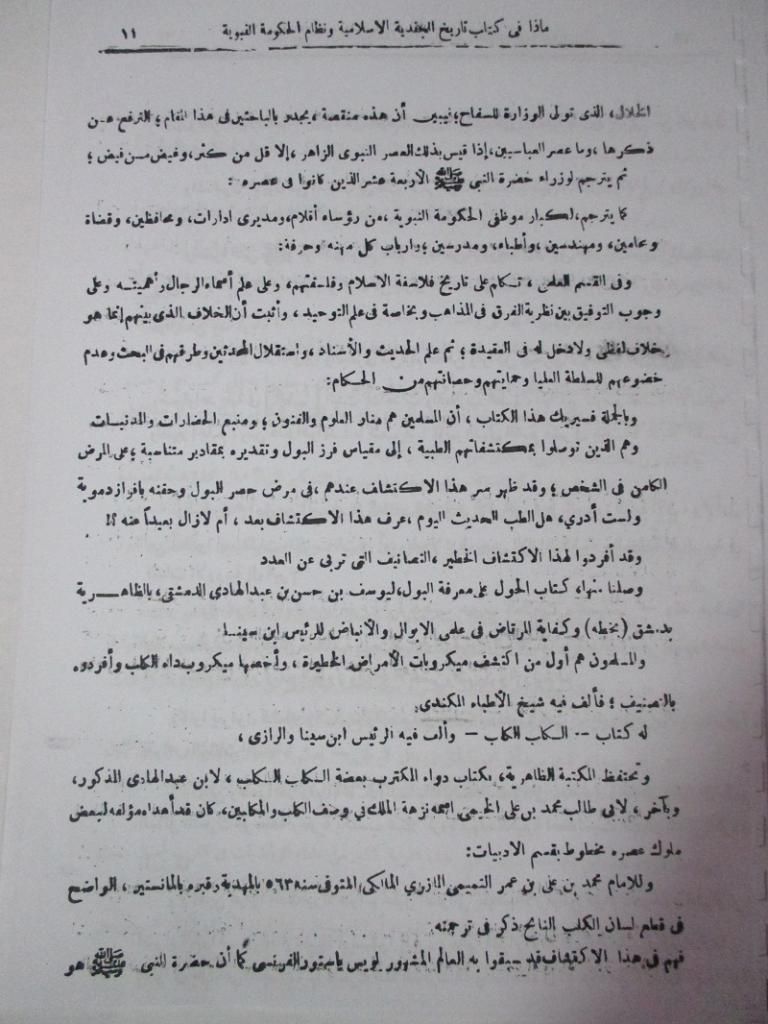 ماذا فى كتاب تاريخ الجندية الاسلامية ونظام الحكومة النبوية ١١
الخلال، الذى تولى الوزارة للسفاح؛ نبين أن هذه منقصة، يجدر بالباحثين فى هذا المقام؛ الترفع عن
ذكرها، وما عصر العباسيين، إذا قيس بذلك العصر النبوى الزاهر، إلا قل من كثر، وغيض من فيض؛
ثم يترجم لوزراء حضرة النبي ﷺ الأربعة عشر الذين كانوا فى عصره:
كما يترجم، لكبار موظفى الحكومة النبوية، من رؤساء أقلام، ومديرى ادارات، ومحافظين، وقضاة
وعامين، ومهندسين، وأطباء، ومدرسين؛ وارباب كل مهنه وحرفة:
وفى القسم العلمى، تكلم على تاريخ فلاسفة الاسلام وفلسفتهم، وعلى علم أسماء الرجال وأهميته وعلى
وجوب التوفيق بين نظرية الفرق فى المذاهب وبخاصة فى علم التوحيد، وأثبت أن الخلاف الذى بينهم إنما هو
خلاف لفظى ولادخل له فى العقيدة؛ ثم علم الحديث والأسناد، واستقلال المحدثين وطرقهم فى البحث وعدم
خضوعهم للسلطة العليا وحمايتهم وحصانتهم من الحكام:
وبالجملة فسيريك هذا الكتاب، أن المسلمين هم منار العلوم والفنون؛ ومنبع الحضارات والمدنيات
وهم الذين توصلوا بمكتشفاتهم الطبية، إلى مقياس فرز البول وتقديره بمقادير متناسبة؛ على المرض
الكامن فى الشخص؛ وقد ظهر سر هذا الاكتشاف عندهم، فى مرض حصر البول وحقنه بافراز دموية
ولست أدري، هل الطب الحديث اليوم، عرف هذا الاكتشاف بعد، أم لازال بعيداً عنه ؟!
وقد أفردوا لهذا الاكتشاف الخطير، التصانيف التى تربى عن العدد
وصلنا منها، كتاب الحول على معرفة البول، ليوسف بن حسن بن عبد الهادى الدمشقى، بالظاهرية
بدمشق (بخطه) وكفاية المرتاض فى علمى الابوال والأنباض للرئيس ابن سينا
والمسلمون هم أول من اكتشف ميكروبات الأمراض الخطيرة، وأخصها ميكروب داء الكلب وأفردوه
بالتصنيف؛ فألف فيه شيخ الأطباء الكندى
له كتاب -- الكلب الكلب -- وألف فيه الرئيس ابن سينا والرازى،
وتحتفظ المكتبة الظاهرية، بكتاب دواء المكترب بعضة الكلب الكلب، لابن عبد الهادى المذكور،
وبآخر، لابى طالب محمد بن على الخيمى اسمه نزهة الملك فى وصف الكلب والمكلبين، كان قد أهداه مؤلفه لبعض
ملوك عصره مخطوط بقسم الادبيات:
وللامام محمد بن على بن عمر التميمى المازري المالكى المتوفى سنة ٥٣٦ بالمهدية وقبره بالمانستير، الواضع
فى قطع لسان الكلب النابح ذكر فى ترجمته
فهم فى هذا الاكتشاف قد سبقوا به العالم المشهور لويس باستور الفرنسى كما أن حضرة النبي ﷺ هو